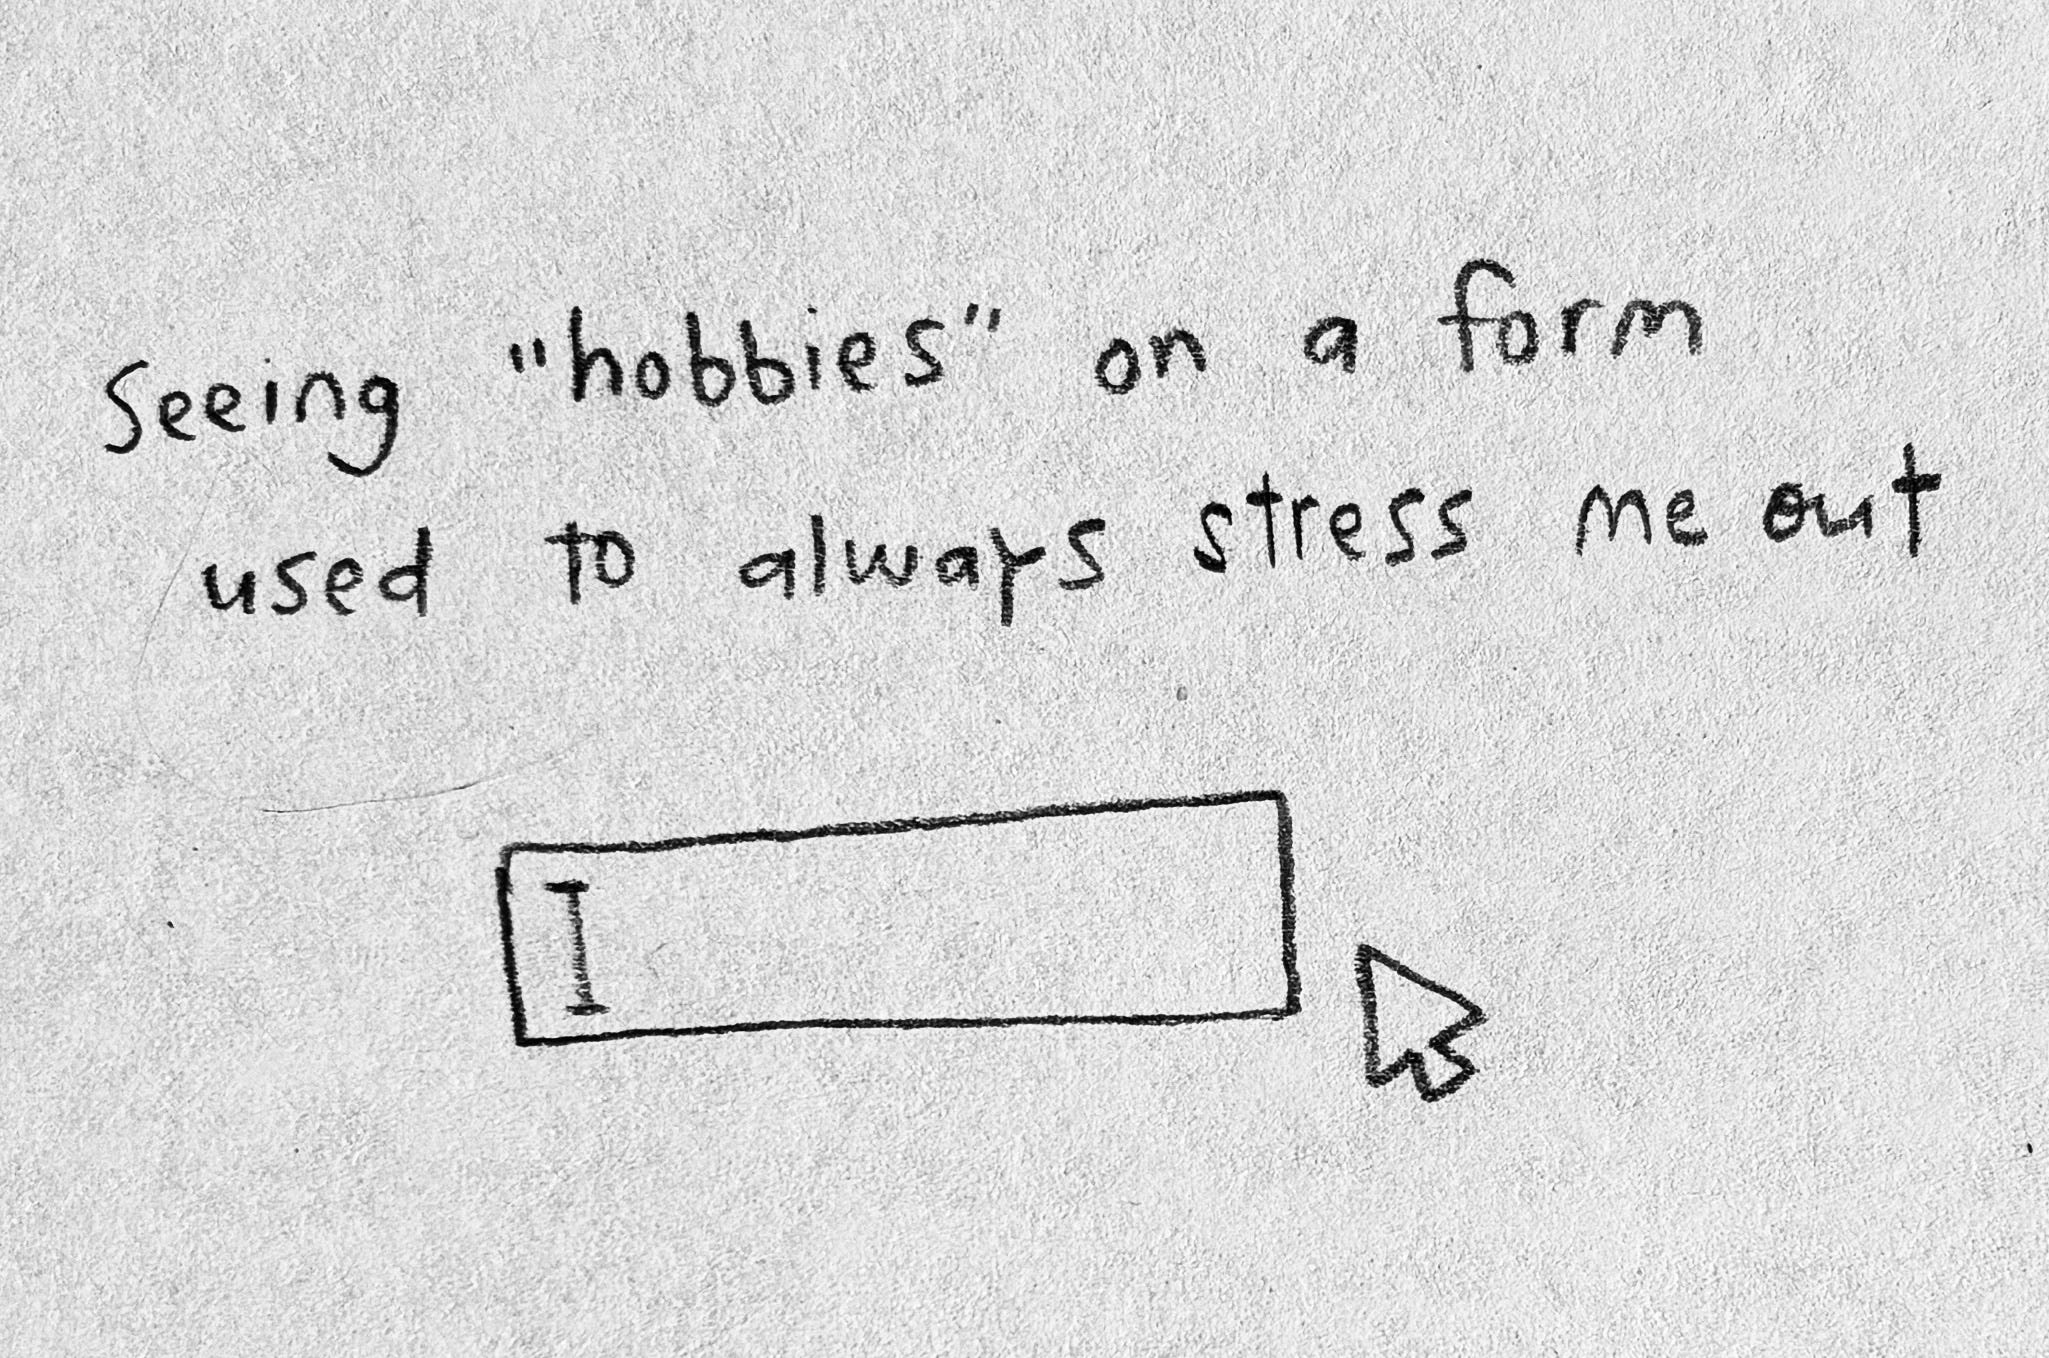 Seeing "hobbies" on a form
used to always stress me out